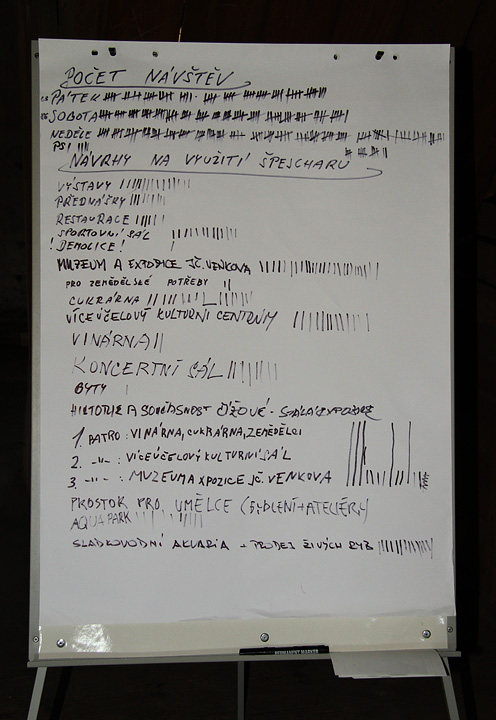 POČET NÁVŠTĚV
PÁTEK
SOBOTA
NEDĚLE
PSI
NÁVRHY NA VYUŽITÍ ŠPEJCHARU
VÝSTAVY
PŘEDNÁŠKY
RESTAURACE
SPORTOVNÍ SÁL
! DEMOLICE !
MUZEUM A EXPOZICE JČ. VENKOVA
PRO ZEMĚDĚLSKÉ POTŘEBY
CUKRÁRNA
VÍCEÚČELOVÝ KULTURNÍ CENTRUM
VINÁRNA
KONCERTNÍ SÁL
BYTY
HISTORIE A SOUČASNOST
1. PATRO: VINÁRNA, CUKRÁRNA, ZEMĚDĚLCI
2. -"- : VÍCEÚČELOVÝ KULTURNÍ SÁL
3. -"- : MUZEUM A XPOZICE JČ. VENKOVA
PROSTOR PRO UMĚLCE (BYDLENÍ+ATELIÉRY)
AQUAPARK
SLADKOVODNÍ AKVARIA + PRODEJ ŽIVÝCH RYB
PERMANENT MARKER